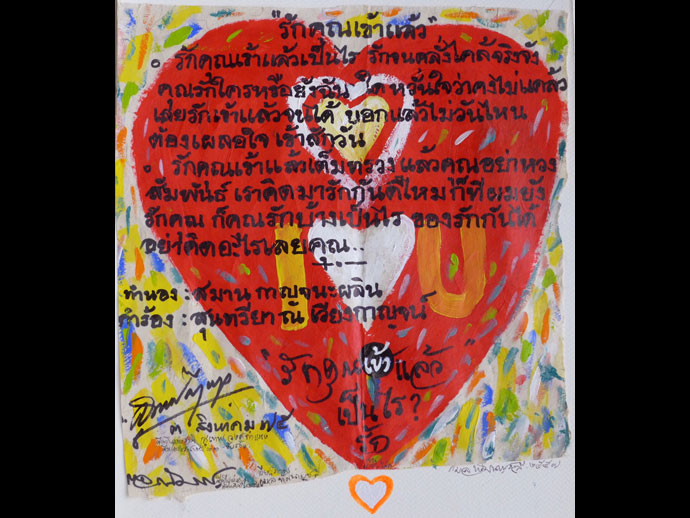 "รักคุณเข้าแล้ว"
๐ รักคุณเข้าแล้วเป็นไร รักจนคลั่งไคล้จริงจัง
คุณรักใครหรือยังฉัน ใด หวั่นใจว่าคงไม่แคล้ว
เสียรักเข้าแล้วจนได้ บอกแล้วไม่วันไหน
ต้องเผลอใจ เข้าสักวัน
๐ รักคุณเข้าแล้วเต็มทรวง แล้วคุณอย่าหวง
สัมพันธ์ เราคิดมารักกันดีไหม ก็ทีผมยัง
รักคุณ ก็คุณรักบ้างเป็นไร ของรักกันได้
อย่าคิดอะไรเลยคุณ...
ทำนอง : สมาน กาญจนะผลิน
คำร้อง : สุนทรียา ณ เวียงกาญจน์
I U
"รักคุณเข้าแล้ว"
เป็นไร?
๓ สิงหาคม ๓๕